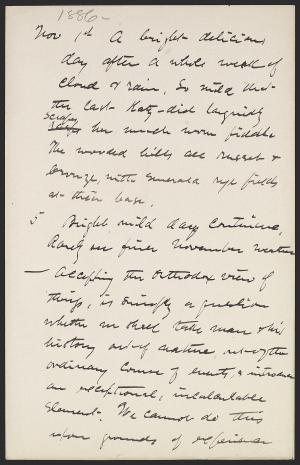 1886-
Nov 1st A bright delicious
day after a whole week of
cloud & rain, so mild that
the last Katy-did languidly
scrapes
her much worn fiddle
The wooded hills are russet &
bronze, with emerald rye fields
at their base.
5 Bright mild days continue,
Rarely see finer November weather
— Accepting the Orthodox view of
things, is simply a question
whether we shall take man & his
history out of nature, out of the
ordinary course of events, & introduce
an exceptional, incalculable
element. We cannot do this
upon grounds of